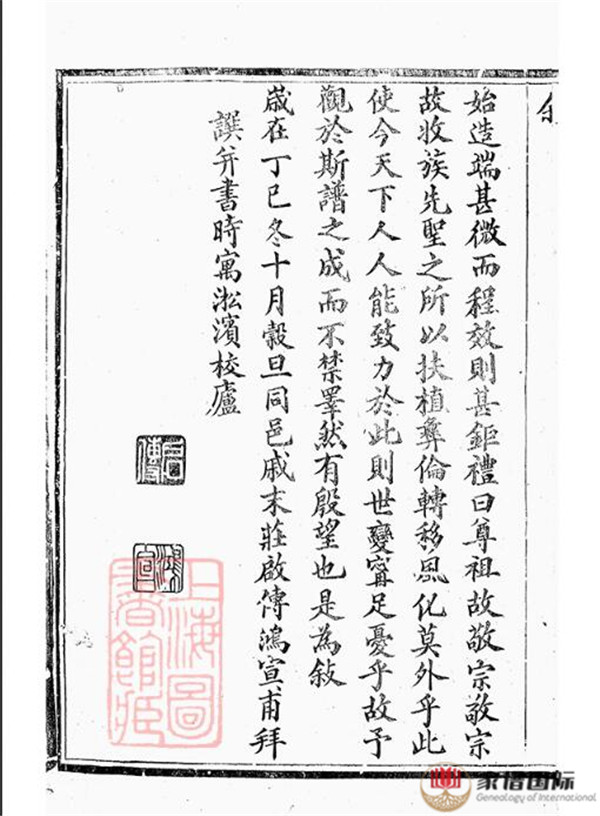 始造端甚微而程效則甚鉅禮曰尊祖故敬宗敬宗
故收族先聖之所以扶植彝倫轉移風化莫外乎此
使今天下人人能致力於此則世變甯足憂乎故予
觀於斯譜之成而不禁睪然有殷望也是為敘
歲在丁巳冬十月穀旦同邑戚末莊啟傳鴻宣甫拜
譔并書時寓淞濱校廬
啟傳
鴻宣
上海圖書館藏
家谱国际
Genealogy of International